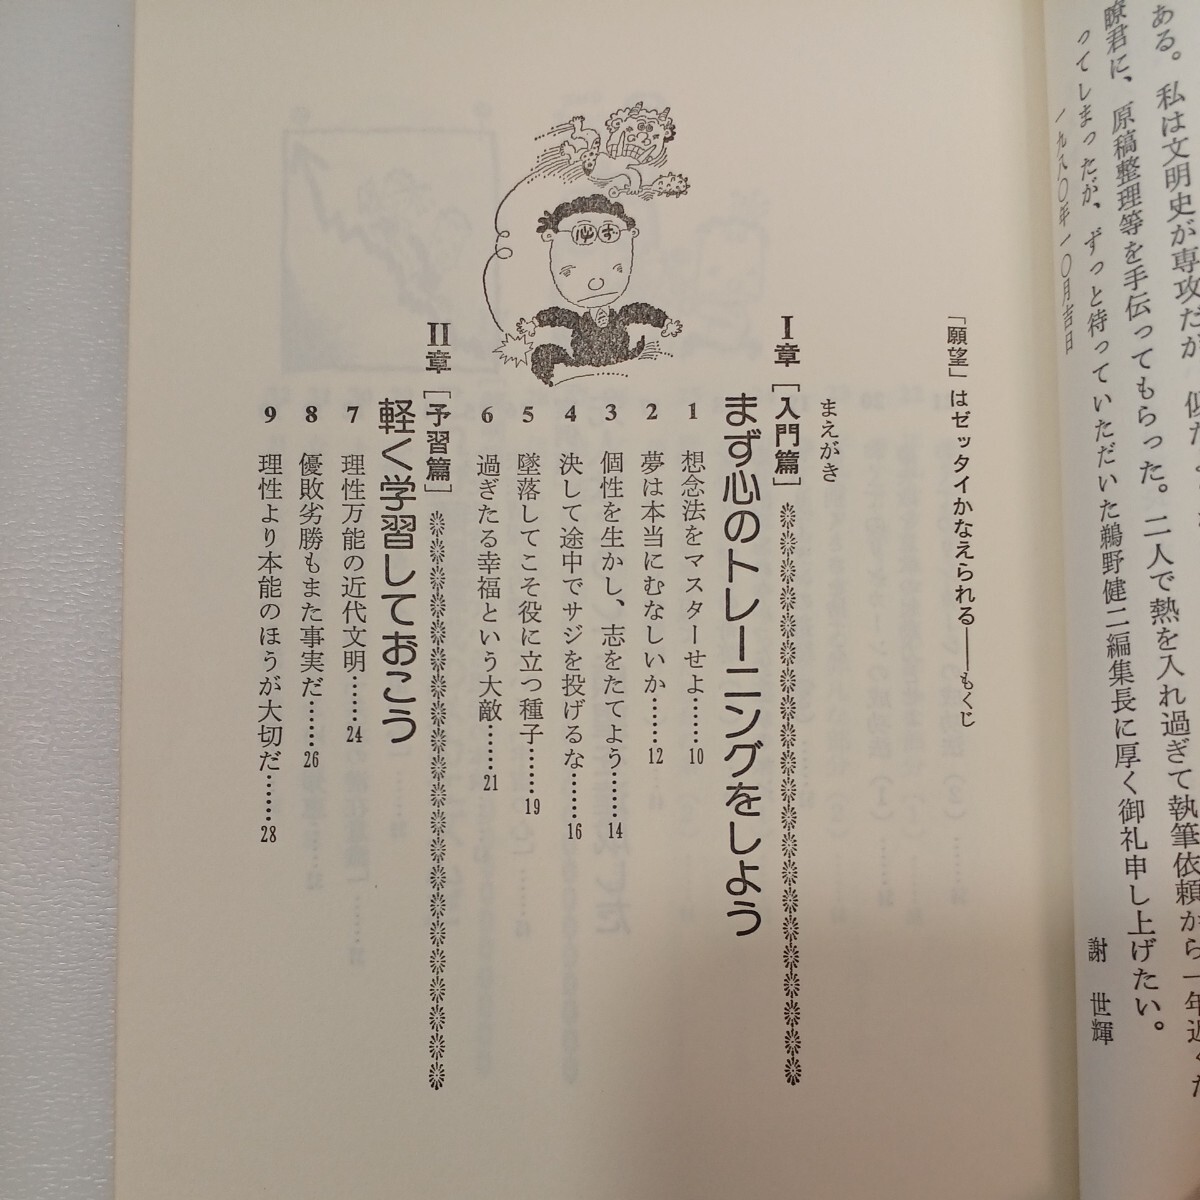 ある。私は文明史が専攻だが
瞭君に、原稿整理等を手伝ってもらった。二人で熱を入れ過ぎて執筆依頼から一年近くた
ってしまったが、ずっと待っていただいた鵜野健二編集長に厚く御礼申し上げたい。
一九八〇年一〇月吉日
謝 世輝
「願望」はゼッタイかなえられる——もくじ
まえがき
I章［入門篇］
まず心のトレーニングをしよう
1 想念法をマスターせよ……10
2 夢は本当にむなしいか……12
3 個性を生かし、志をたてよう……14
4 決して途中でサジを投げるな……16
5 墜落してこそ役に立つ種子……19
6 過ぎたる幸福という大敵……21
II章［予習篇］
軽く学習しておこう
7 理性万能の近代文明……24
8 優敗劣勝もまた事実だ……26
9 理性より本能のほうが大切だ……28